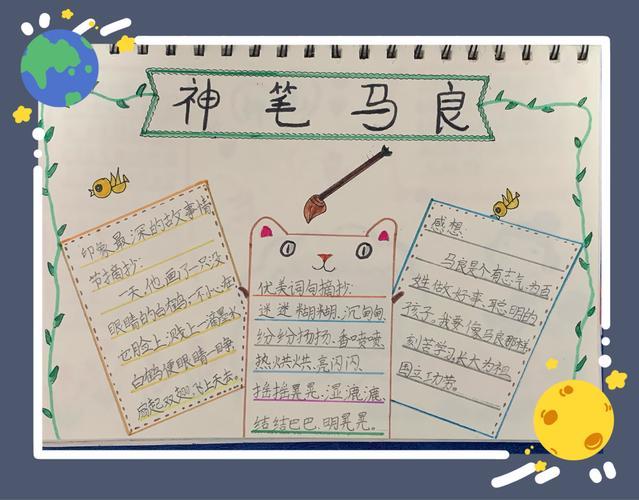 神笔马良
印象最深的故事情
节摘抄:
一天,他画了一只没
眼睛的白鹤,一不小心在
它脸上溅上一滴墨水,
白鹤便眼睛一睁,
扇起双翅飞上天去。
优美词句摘抄:
迷迷糊糊、沉甸甸
纷纷扬扬、香喷喷
热烘烘、亮闪闪、
摇摇晃晃、湿漉漉、
结结巴巴、明晃晃。
感想:
马良是个有志气、为百
姓做好事、聪明的
孩子。我要像马良那样
刻苦学习,长大为祖
国立功劳。